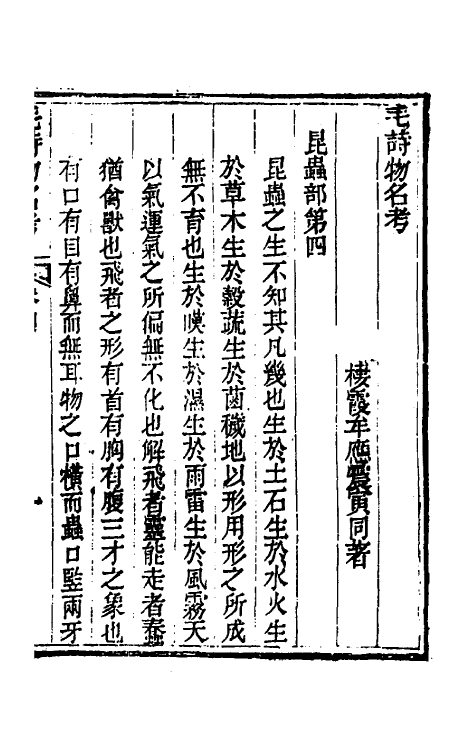 毛詩物名考
棲霞牟應震寅同著
昆蟲部第四
昆蟲之生不知其凡幾也生於土石生於水火生
於草木生於穀蔬生於菌穢地以形用形之所成
無不育也生於暵生於濕生於雨雷生於風霧天
以氣運氣之所偏無不化也解飛者靈能走者蠢
猶禽獸也飛者之形有首有胸有腹三才之象也
有口有目有鼻而無耳物之口橫而蟲口竪兩牙
毛詩物名考